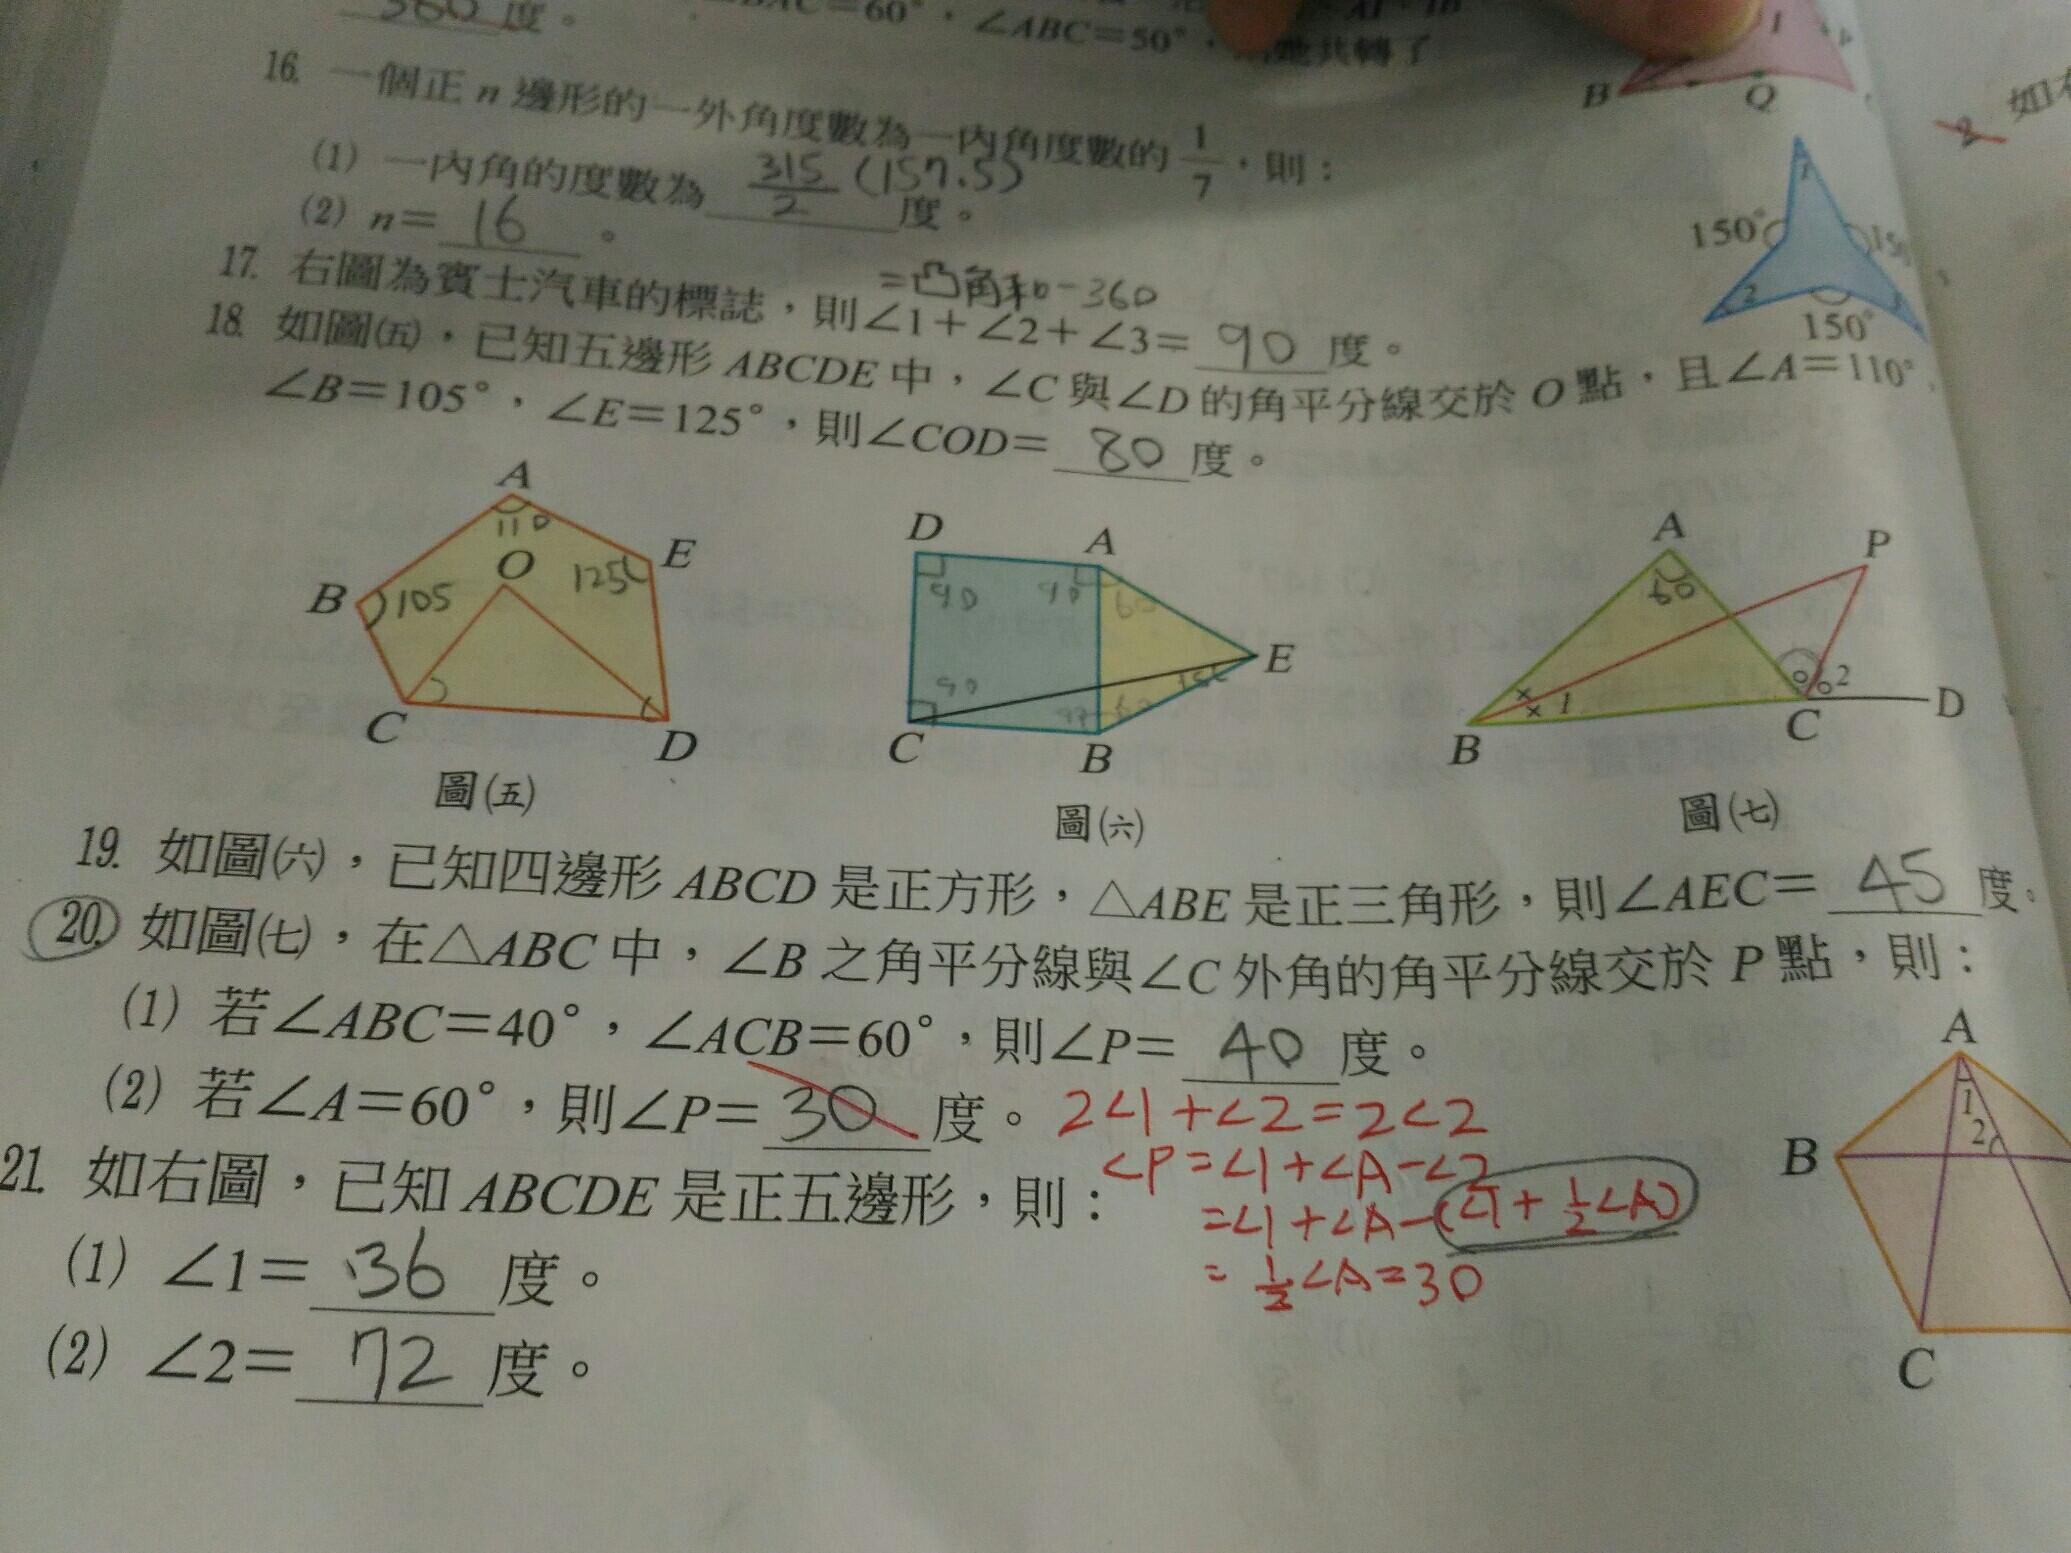 360 度。
∠BAC=60°，∠ABC=50°，
共轉了
B Q
16. 一個正 n 邊形的一外角度數為一內角度數的 1/7，則：
(1) 一內角的度數為 315/2 (157.5) 度。
(2) n= 16 。
1
150° 150
2
150°
=凸角和-360
17. 右圖為賓士汽車的標誌，則∠1+∠2+∠3= 90 度。
18. 如圖(五)，已知五邊形 ABCDE 中，∠C 與∠D 的角平分線交於 O 點，且∠A=110°，
∠B=105°，∠E=125°，則∠COD= 80 度。
A
110
O
B 105 125 E
C D
圖(五)
D A
90 90 60
E
90 15
C B
圖(六)
A P
80
1 2
B C D
圖(七)
19. 如圖(六)，已知四邊形 ABCD 是正方形，△ABE 是正三角形，則∠AEC= 45 度。
20. 如圖(七)，在△ABC 中，∠B 之角平分線與∠C 外角的角平分線交於 P 點，則：
(1) 若∠ABC=40°，∠ACB=60°，則∠P= 40 度。
(2) 若∠A=60°，則∠P= 30 度。 2∠1+∠2=2∠2
∠P=∠1+∠A-∠2
=∠1+∠A-(∠1+1/2∠A)
=1/2∠A=30
21. 如右圖，已知 ABCDE 是正五邊形，則：
(1) ∠1= 36 度。
(2) ∠2= 72 度。
A
1
2
B
C
2 如右